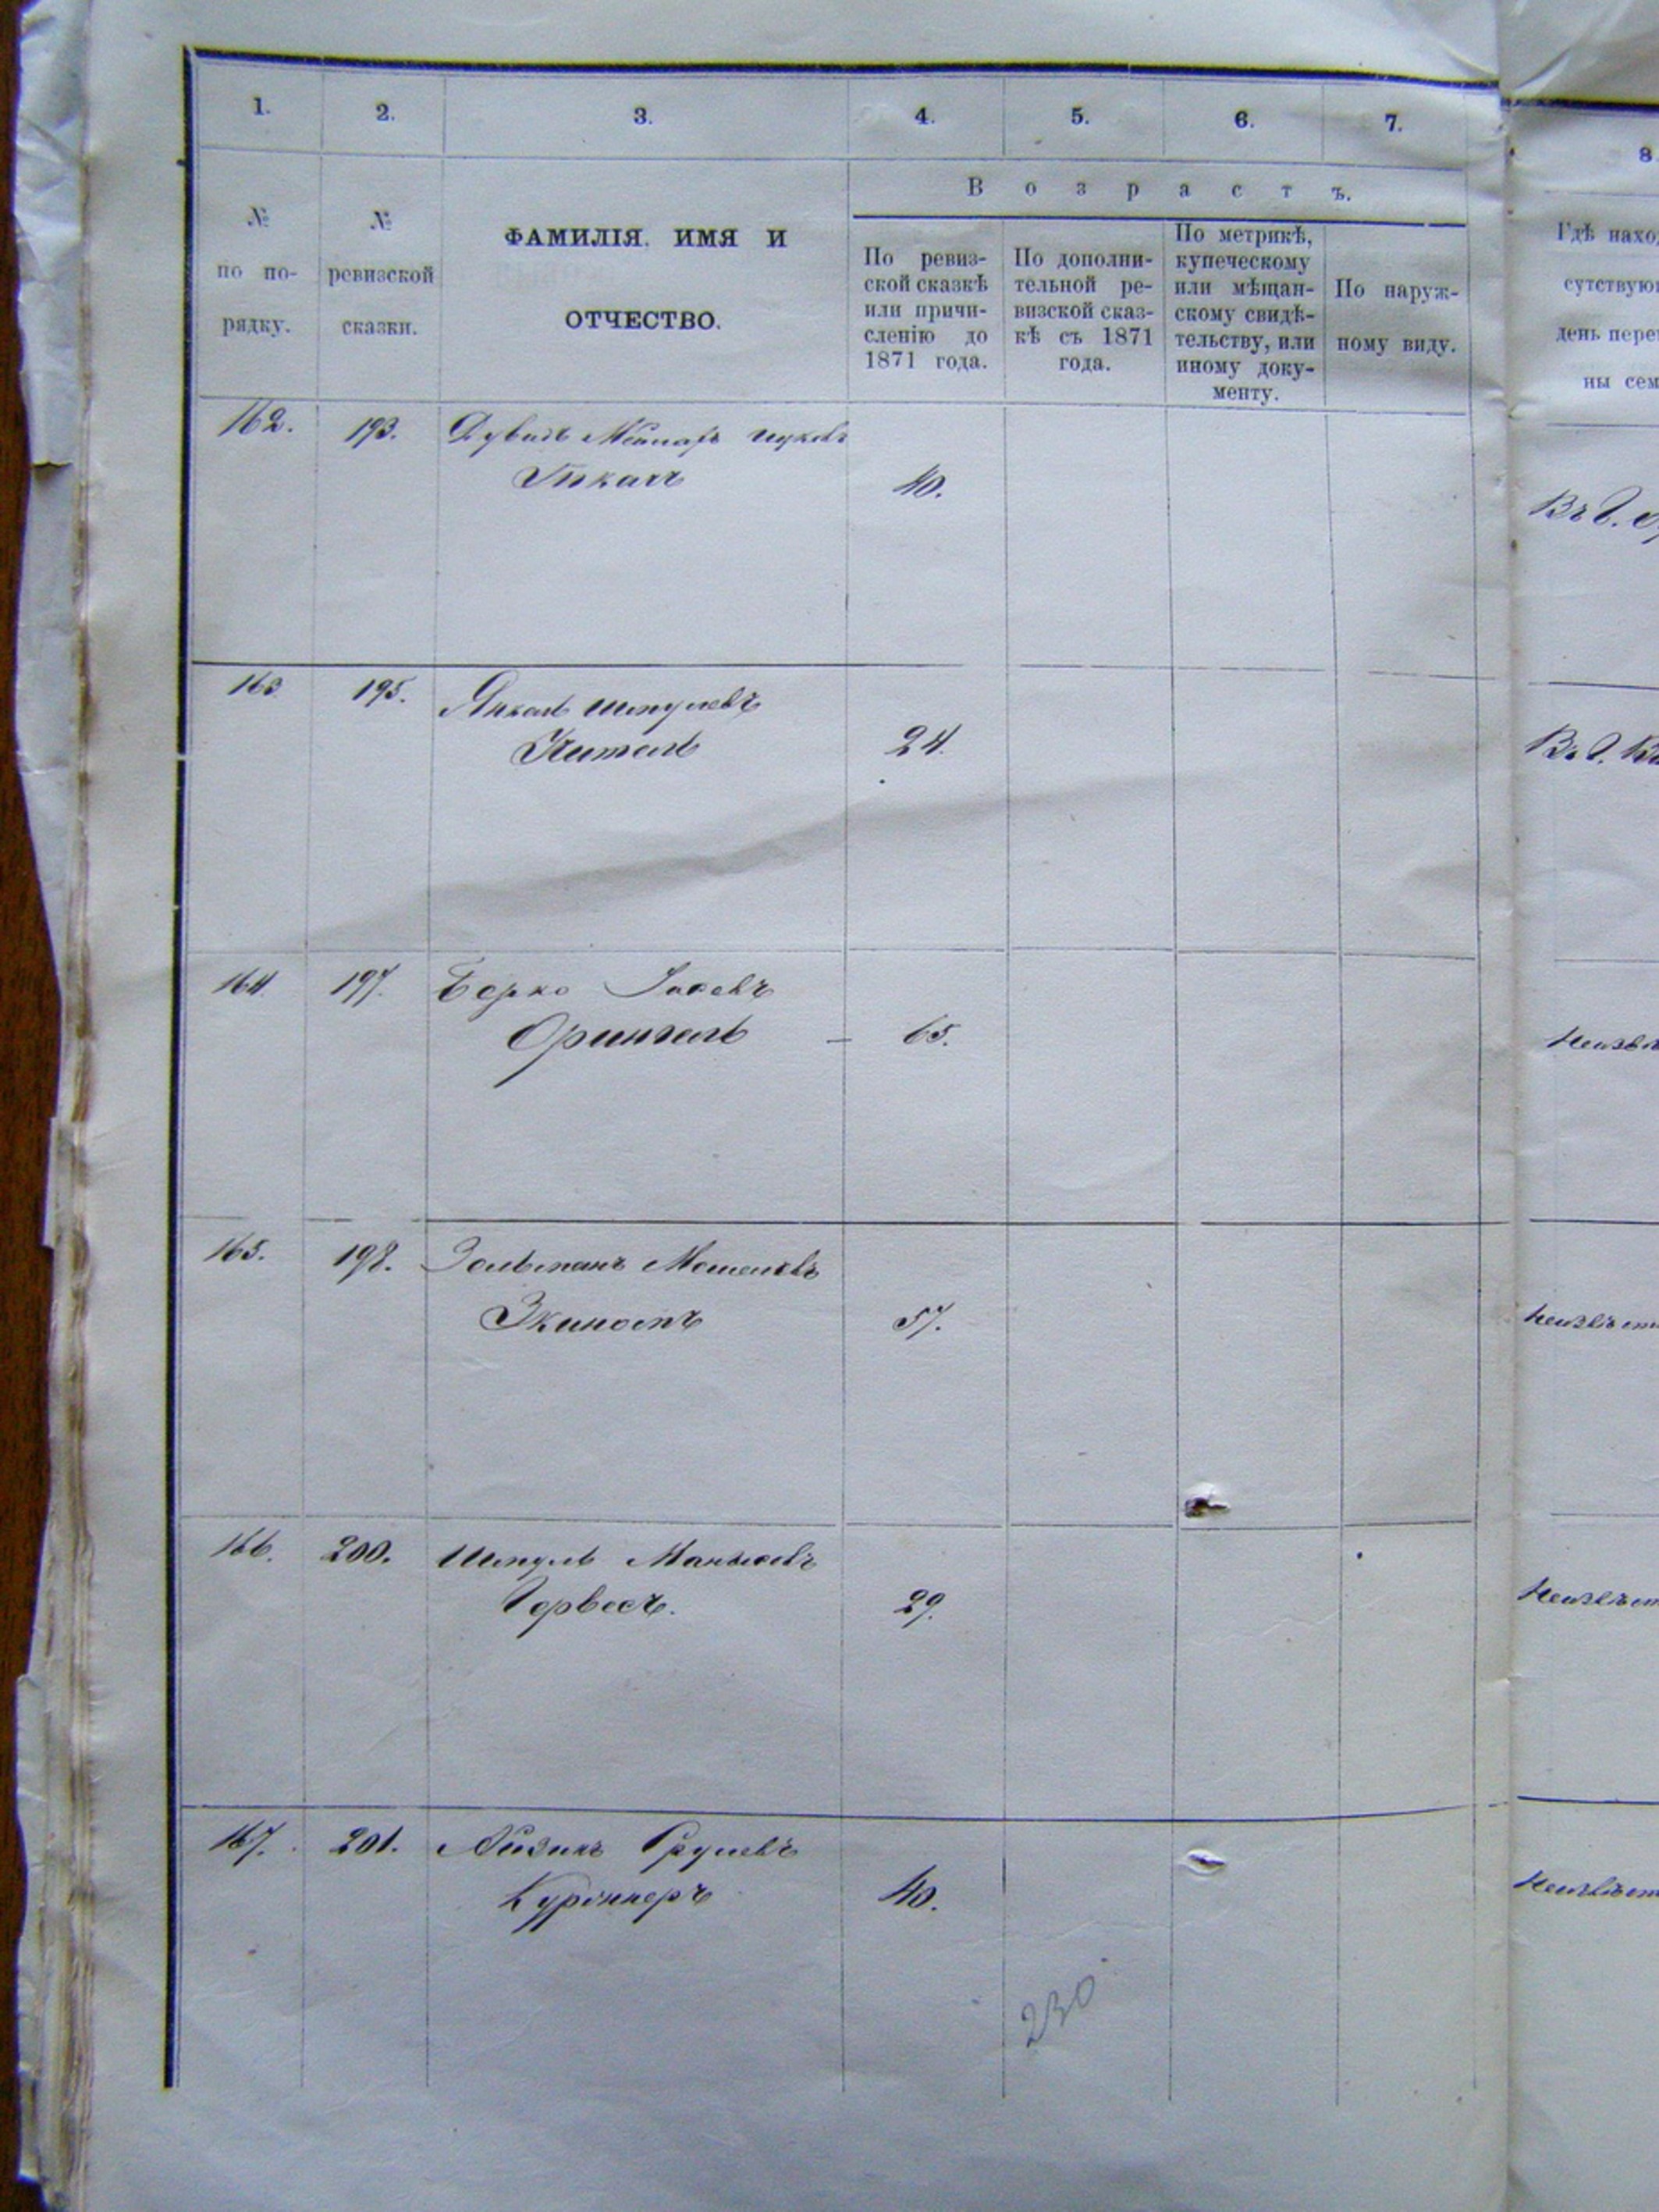 1. 2. 3. 4. 5. 6. 7. 8
В о з р а с т ъ.
№ по по- рядку.
№ ревизской сказки.
ФАМИЛІЯ, ИМЯ И
ОТЧЕСТВО.
По ревиз-
ской сказкѣ
или причи-
сленію до
1871 года.
По дополни-
тельной ре-
визской сказ-
кѣ съ 1871
года.
По метрикѣ,
купеческому
или мѣщан-
скому свидѣ-
тельству, или
иному доку-
менту.
По наруж-
ному виду.
Гдѣ нахо
сутствую
день пере
ны сем
162. 193. Дувидъ
Ткачъ 40.
Въ Г.
163 195. Янкель Шмулевъ
Китель 24.
Въ Г.
164. 197. Берко
Орингель 65.
Неизвѣ
165. 198. Зельманъ Мошковъ
57.
Неизвѣст
166. 200. Шмуль
Горвесъ. 29.
Неизвѣст
167. 201. Айзикъ Срулевъ
40.
Неизвѣст
230